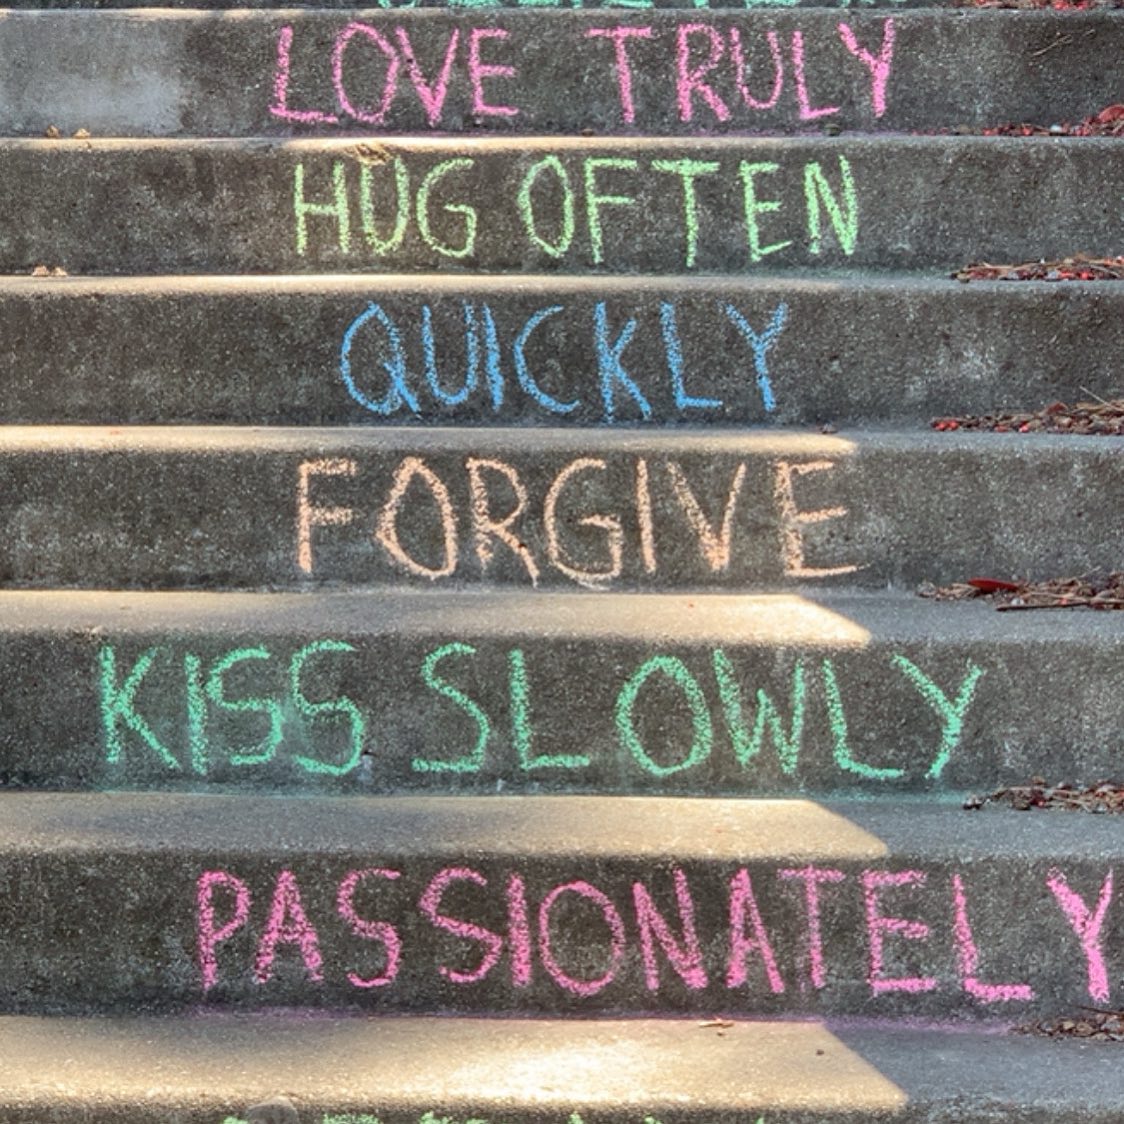 LOVE TRULY
HUG OFTEN
QUICKLY
FORGIVE
KISS SLOWLY
PASSIONATELY